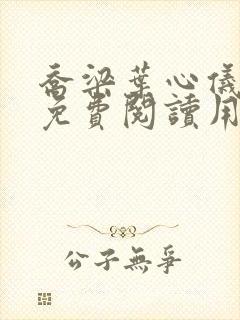 喬梁葉心儀
免費閱讀用
公子無爭